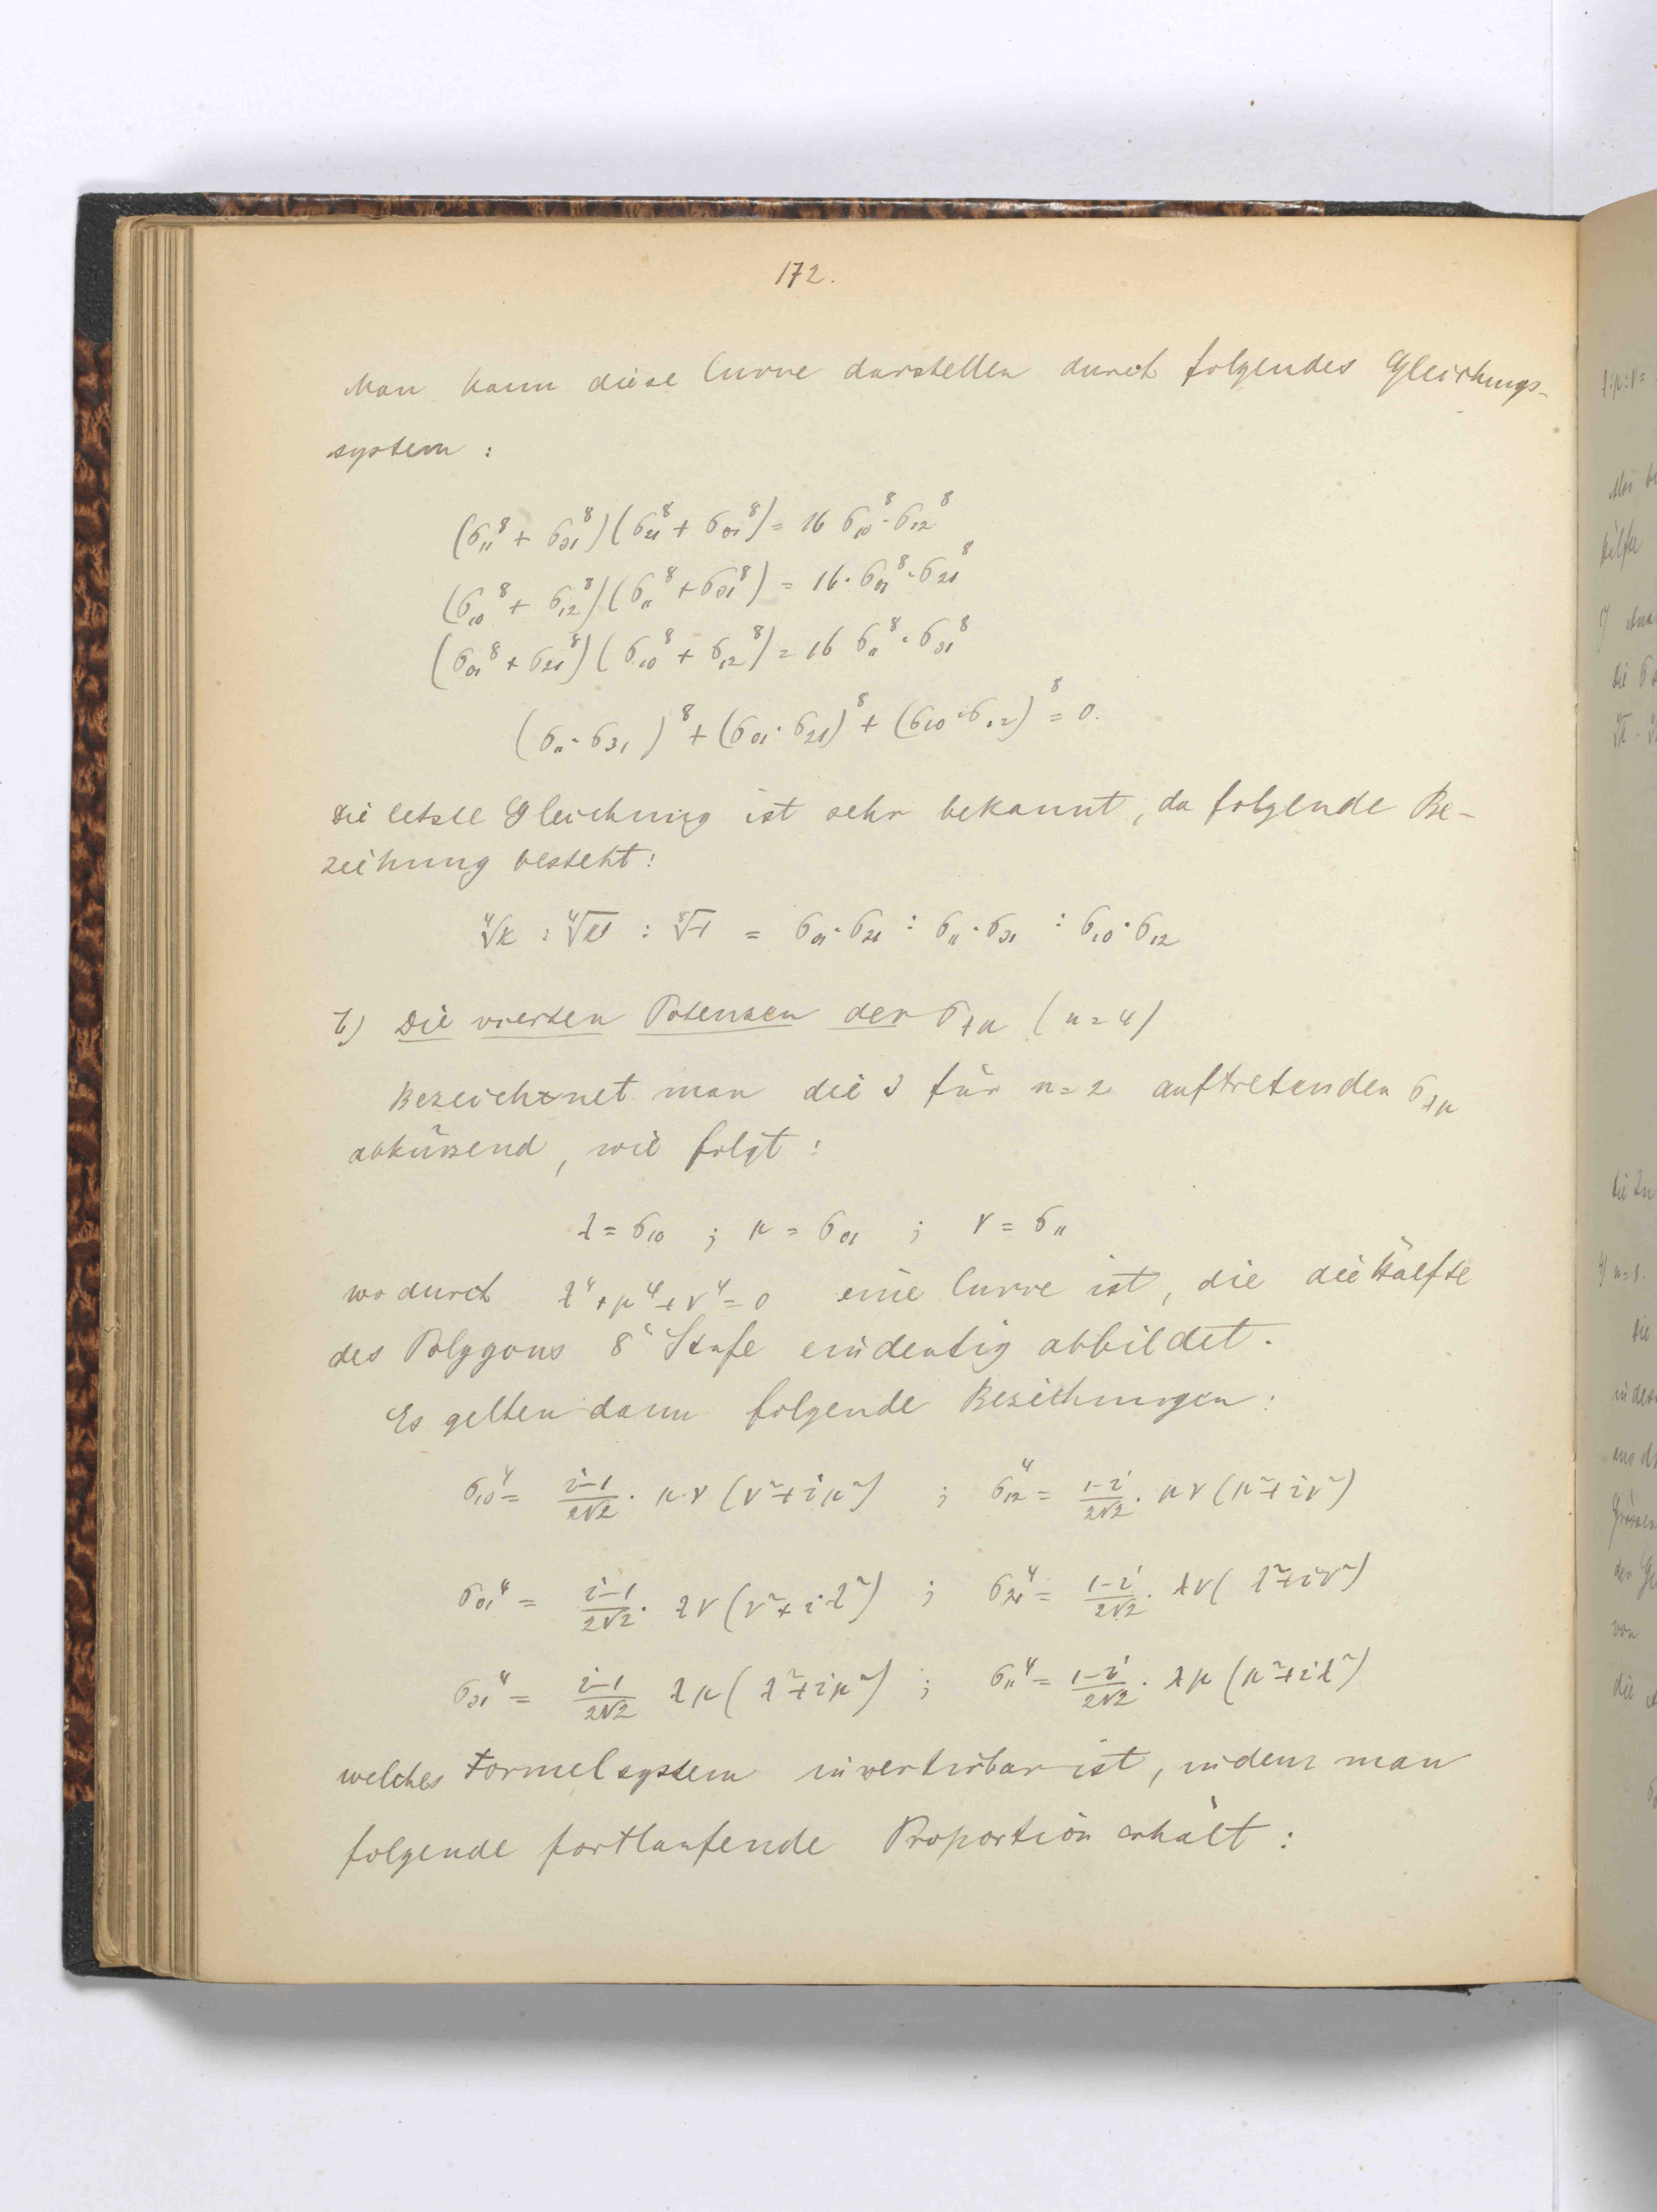 172.
Man kann diese Curve darstellen durch folgendes Gleichungs-
system :
(σ₁₁⁸ + σ₃₁⁸)(σ₂₁⁸ + σ₀₁⁸) = 16 σ₁₀⁸·σ₁₂⁸
(σ₁₀⁸ + σ₁₂⁸)(σ₁₁⁸ + σ₃₁⁸) = 16·σ₀₁⁸·σ₂₁⁸
(σ₀₁⁸ + σ₂₁⁸)(σ₁₀⁸ + σ₁₂⁸) = 16 σ₁₁⁸·σ₃₁⁸
(σ₁₁·σ₃₁)⁸ + (σ₀₁·σ₂₁)⁸ + (σ₁₀·σ₁₂)⁸ = 0.
Die letzte Gleichung ist sehr bekannt, da folgende Be-
ziehung besteht:
∜k : ∜k' : ⁸√-1 = σ₀₁·σ₂₁ : σ₁₁·σ₃₁ : σ₁₀·σ₁₂
b) Die vierten Potenzen der σλμ (n=4)
Bezeichnet man die 3 für n=2 auftretenden σλμ
abkürzend, wie folgt:
λ = σ₁₀ ; μ = σ₀₁ ; ν = σ₁₁
wodurch λ⁴+μ⁴+ν⁴=0 eine Curve ist, die die Hälfte
des Polygons 8ᵗ Stufe eindeutig abbildet.
Es gelten dann folgende Beziehungen:
σ₁₀⁴ = (i-1)/(2√2) · μν(ν²+iμ²) ; σ₁₂⁴ = (1-i)/(2√2) · μν(μ²+iν²)
σ₀₁⁴ = (i-1)/(2√2) · λν(ν²+iλ²) ; σ₂₁⁴ = (1-i)/(2√2) · λν(λ²+iν²)
σ₃₁⁴ = (i-1)/(2√2) λμ(λ²+iμ²) ; σ₁₁⁴ = (1-i)/(2√2) · λμ(μ²+iλ²)
welches Formelsystem invertirbar ist, indem man
folgende fortlaufende Proportion erhält: